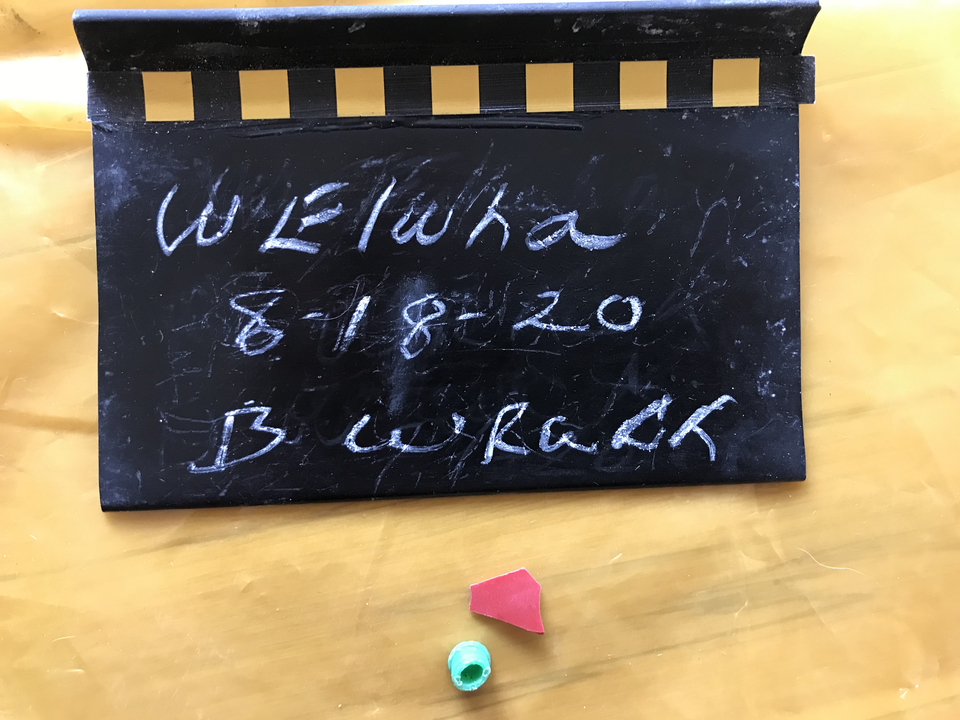 W Elwha
8-18-20
B wRack